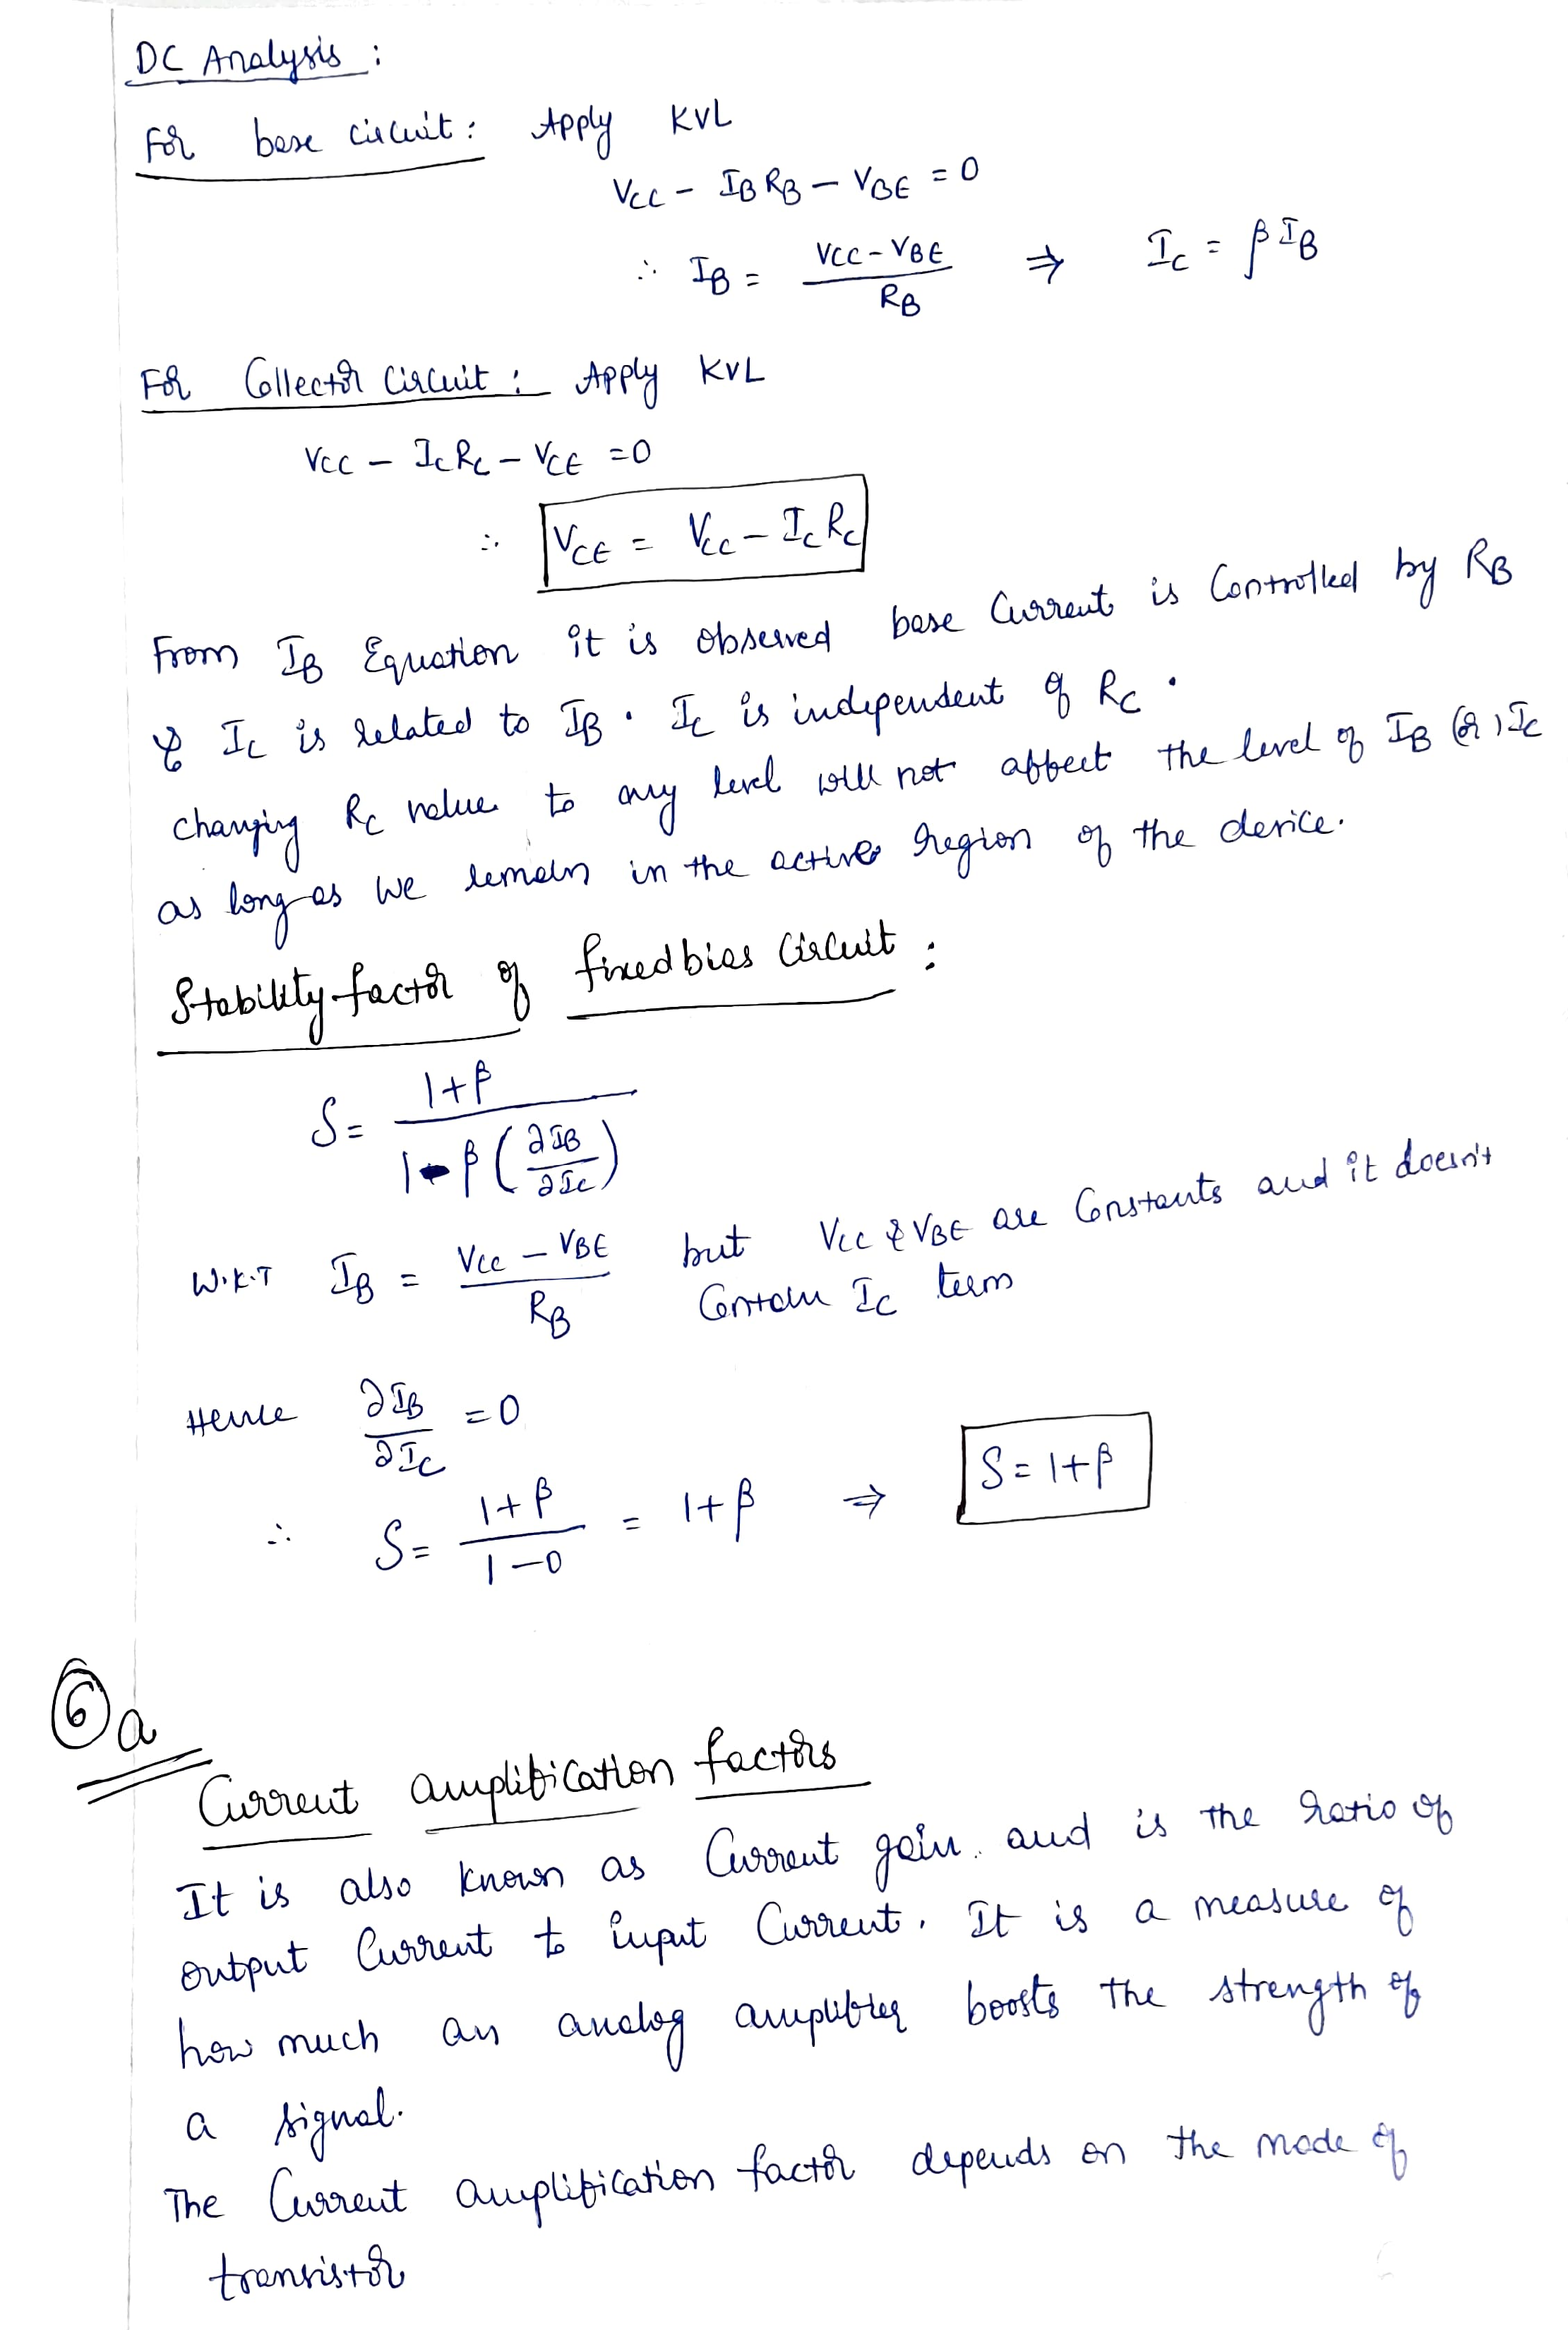 DC Analysis :
For base circuit : Apply KVL
VCC - IB RB - VBE = 0
∴ IB = (VCC - VBE) / RB ⇒ IC = β IB
For Collector Circuit : Apply KVL
VCC - IC RC - VCE = 0
∴ VCE = VCC - IC RC
From IB Equation it is observed base Current is Controlled by RB
& IC is related to IB. IC is independent of RC.
changing RC value to any level will not affect the level of IB (or) IC
as long as we remain in the active region of the device.
Stability factor of fixed bias Circuit :
S = (1+β) / (1-β (∂IB/∂IC))
W.K.T IB = (VCC - VBE) / RB but VCC & VBE are Constants and it doesn't
Contain IC term
Hence ∂IB/∂IC = 0
∴ S = (1+β) / (1-0) = 1+β ⇒ S = 1+β
6 a
Current amplification factors
It is also known as Current gain. and is the ratio of
output Current to input Current. It is a measure of
how much an analog amplifier boosts the strength of
a signal.
The Current amplification factor depends on the mode of
transistor